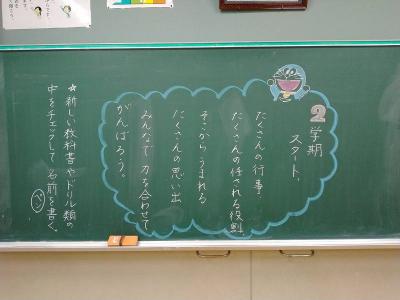 2学期
スタート、
たくさんの行事・
たくさんの任される役割
そこから うまれる
たくさんの思い出
みんなで 力を合わせて
がんばろう。
☆新しい教科書やドリル類の
中をチェックして 名前を書く。
ペン